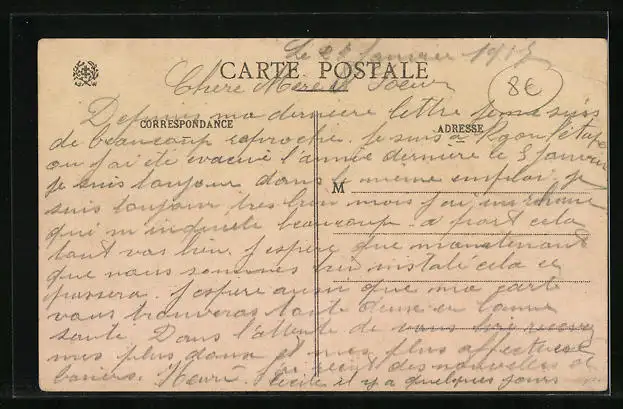 Le 25 Janvier 1915
CARTE POSTALE
Chere Mere et Soeur
8€
Depuis ma derniere lettre je me suis
CORRESPONDANCE
ADRESSE
de beaucoup raproché. je suis a
ou j'ai été évacué l'année derniere le 5 Janvier
je suis toujour dans le meme emploi. je
M
suis toujour tres bien mais j'ai un rhume
qui m'inquiete beaucoup. a part cela
tout vas bien. J'espere que maintenant
que nous sommes bien instalé cela ce
passera. J'espere aussi que ma carte
vous trouveras toute deux en bonne
santé. Dans l'attente de vous
mes plus doux et mes plus affectueux
baisers. Henri. J'ai recut des nouvelles de
Cecile il y a quelques jours